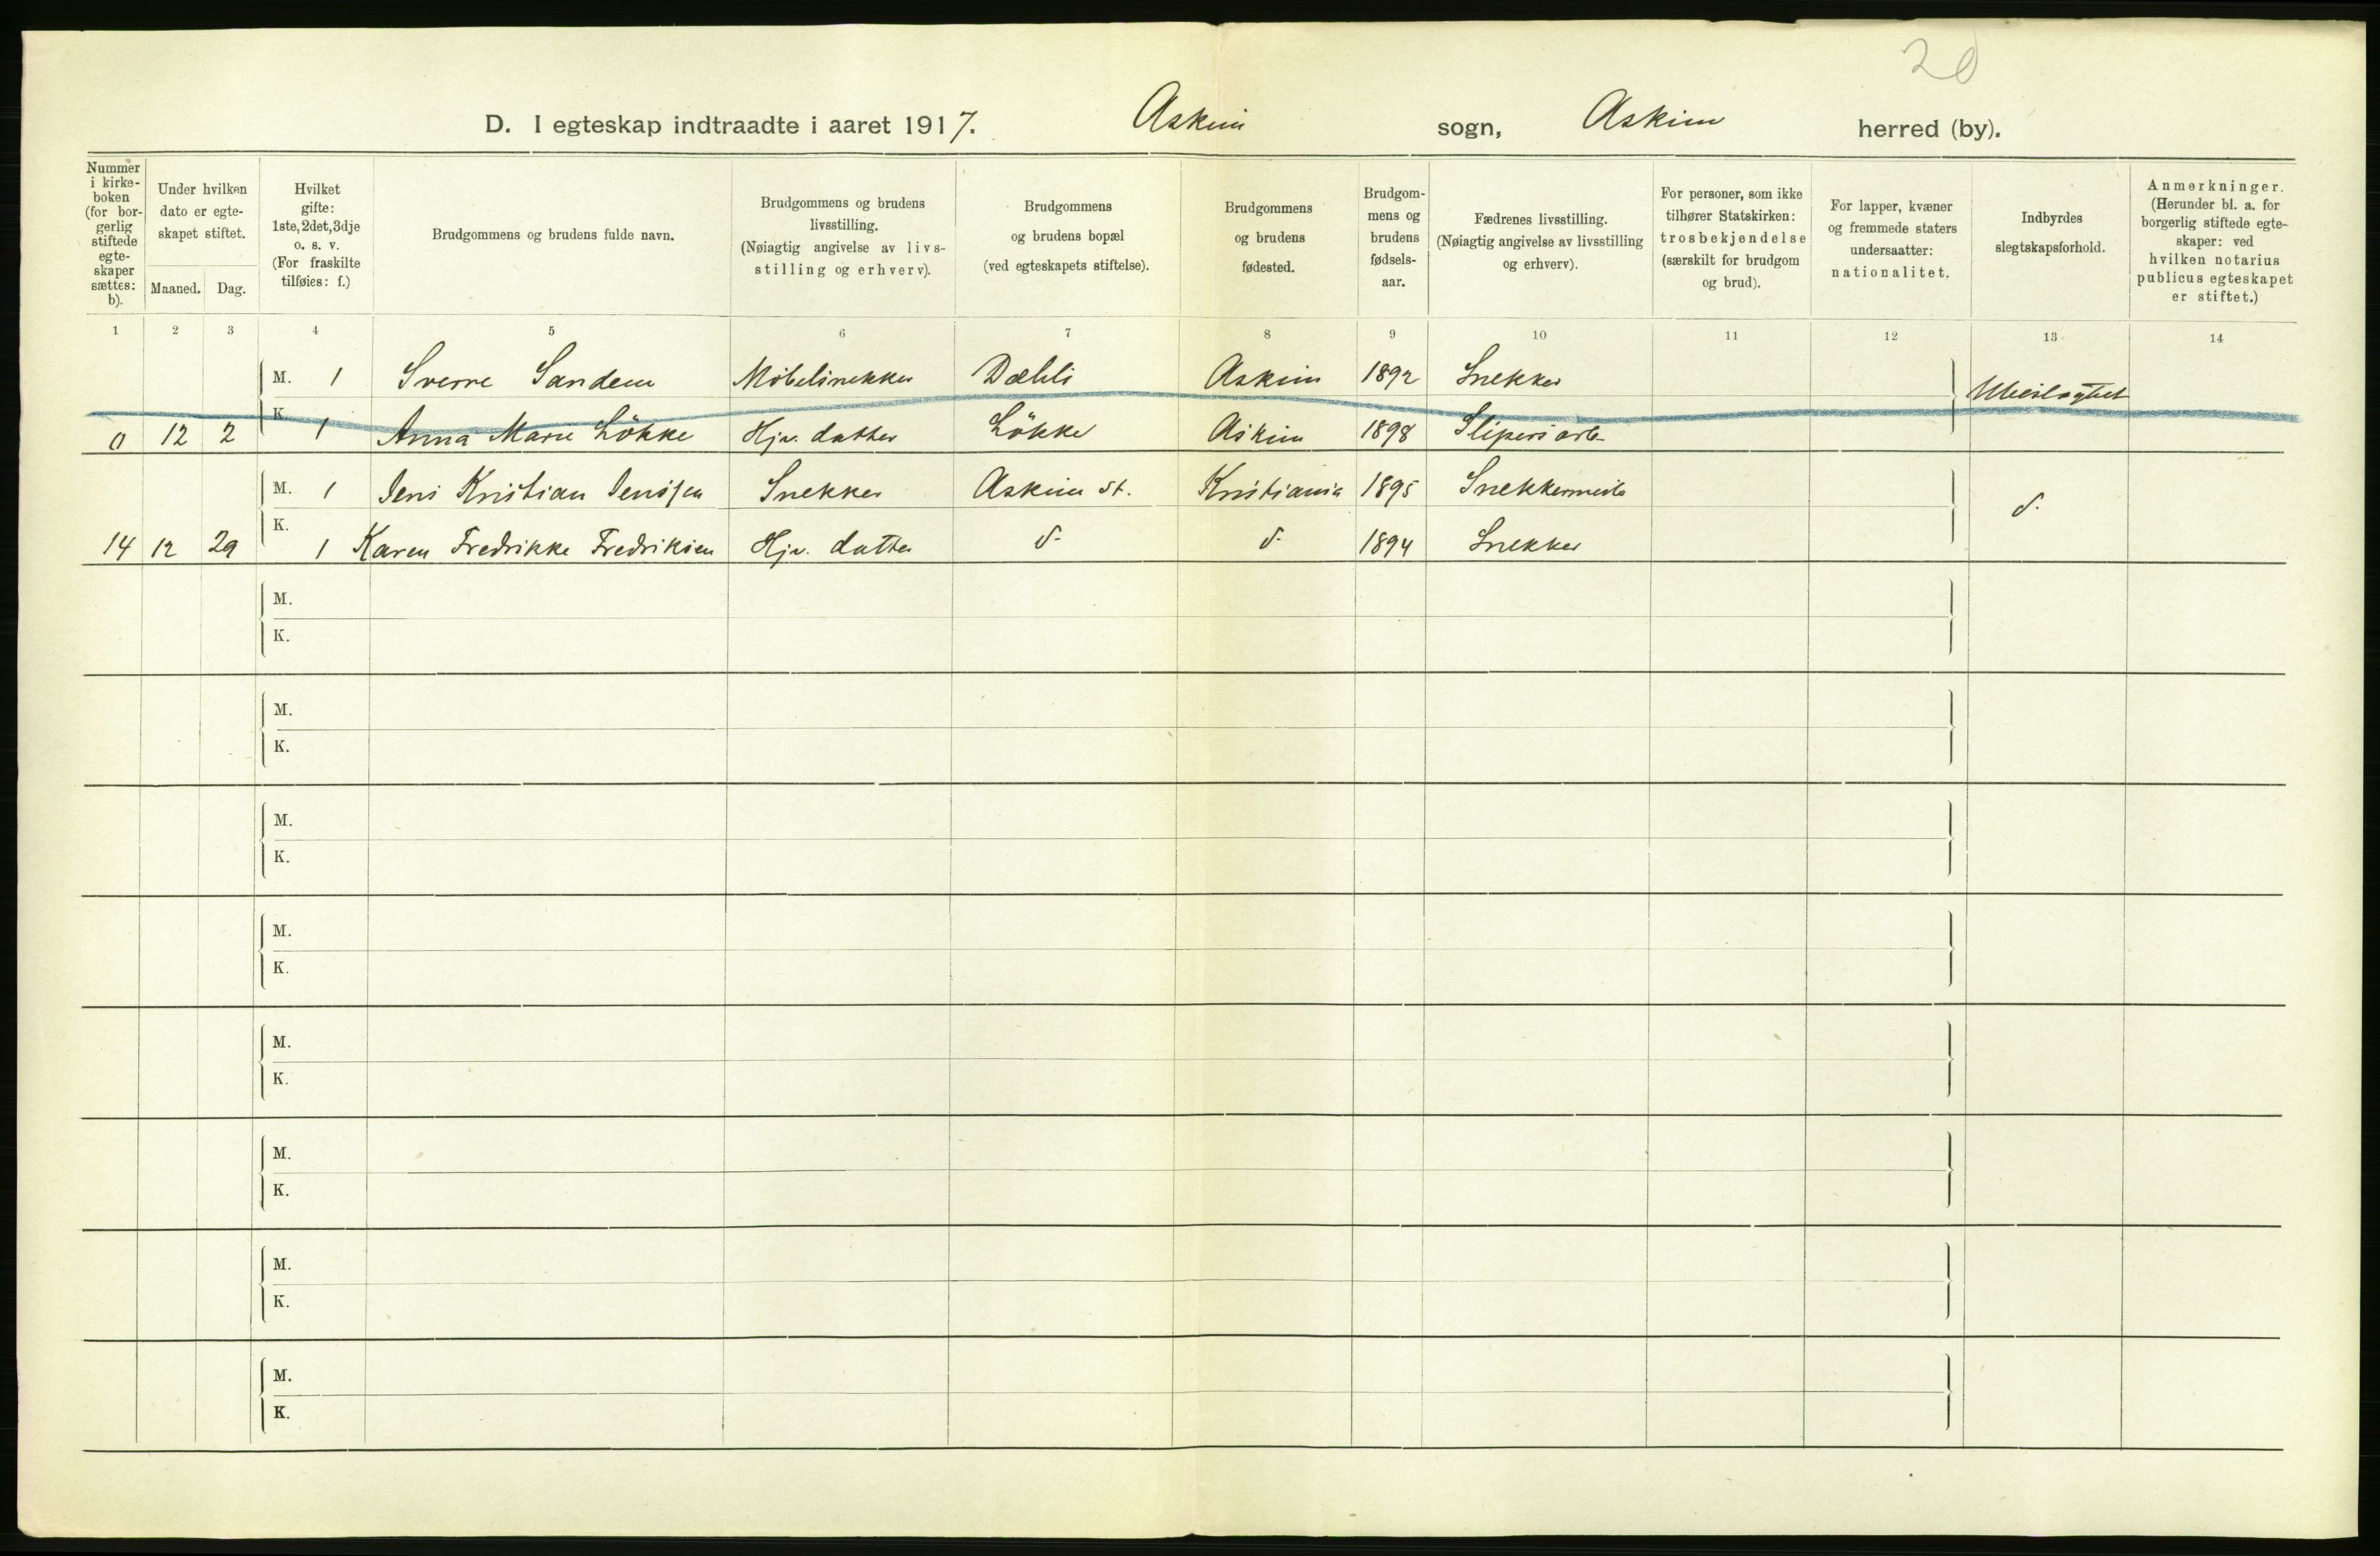 20
D. I egteskap indtraadte i aaret 1917. Askim sogn, Askim herred (by).
Nummer i kirke-boken (for bor-gerlig stiftede egte-skaper sættes: b).
Under hvilken dato er egte-skapet stiftet.
Maaned. Dag.
Hvilket gifte: 1ste, 2det, 3dje o. s. v. (For fraskilte tilføies: f.)
Brudgommens og brudens fulde navn.
Brudgommens og brudens livsstilling. (Nøiagtig angivelse av livs-stilling og erhverv).
Brudgommens og brudens bopæl (ved egteskapets stiftelse).
Brudgommens og brudens fødested.
Brudgom-mens og brudens fødsels-aar.
Fædrenes livsstilling. (Nøiagtig angivelse av livsstilling og erhverv).
For personer, som ikke tilhører Statskirken: trosbekjendelse (særskilt for brudgom og brud).
For lapper, kvæner og fremmede staters undersaatter: nationalitet.
Indbyrdes slegtskapsforhold.
Anmerkninger. (Herunder bl. a. for borgerlig stiftede egte-skaper: ved hvilken notarius publicus egteskapet er stiftet.)
1 2 3 4 5 6 7 8 9 10 11 12 13 14
M. 1 Sverre Sandem Möbelsnekker Dæhli Askim 1892 Snekker
0 12 2 K. 1 Anna Marie Lökke Hjv. datter Lökke Askim 1898 Sliperiarb.
M. 1 Jens Kristian Jenssen Snekker Askim st. Kristiania 1895 Snekkermester d.
14 12 29 K. 1 Karen Fredrikke Fredriksen Hjv. datter d. d. 1894 Snekker
M.
K.
M.
K.
M.
K.
M.
K.
M.
K.
M.
K.
M.
K.
M.
K.